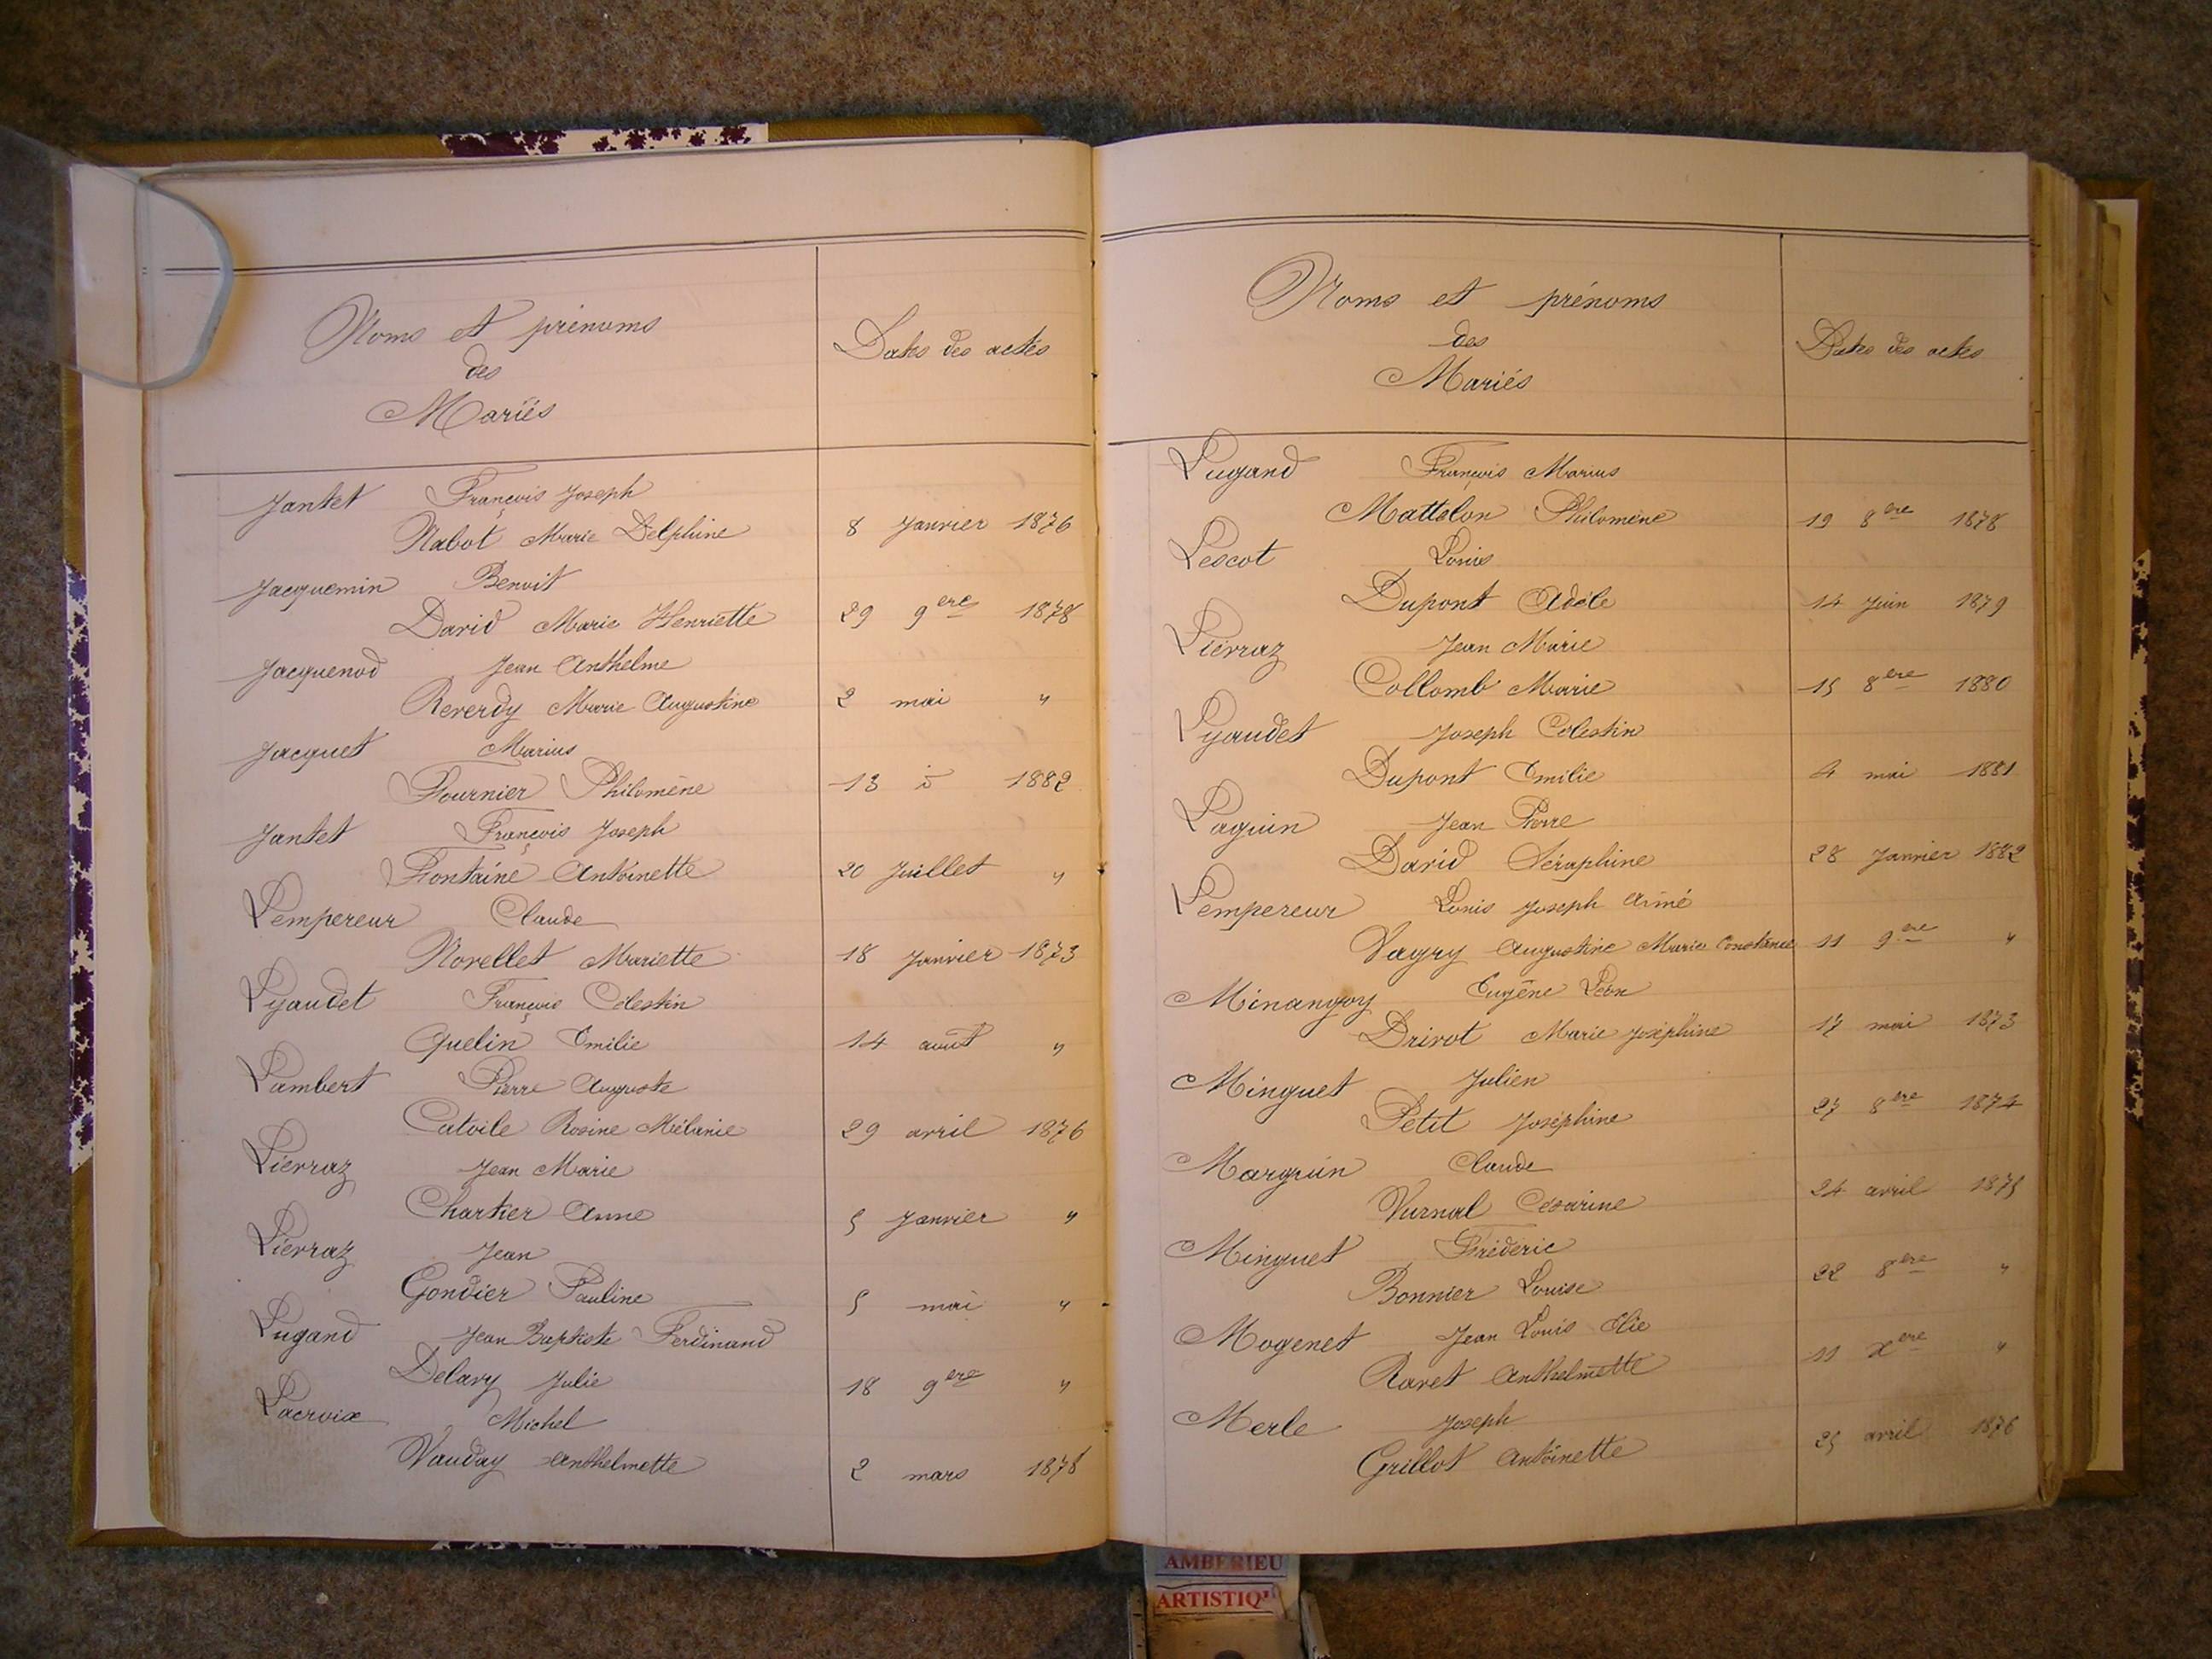 Noms et prénoms
des
Mariés
Dates des actes
Jantet François Joseph
Nabot Marie Delphine 8 Janvier 1876
Jacquemin Benoit
David Marie Henriette 29 9ere 1878
Jacquenod Jean Anthelme
Reverdy Marie Augustine 2 mai "
Jacquet Marius
Fournier Philomène 13 id 1882
Jantet François Joseph
Fontaine Antoinette 20 Juillet "
Lempereur Claude
Novellet Mariette 18 Janvier 1873
Lyaudet François Célestin
Quelin Emilie 14 août "
Lambert Pierre Auguste
Catoile Rosine Mélanie 29 avril 1876
Lierraz Jean Marie
Chartier Anne 5 Janvier "
Lierraz Jean
Gondier Pauline 5 mai "
Lugand Jean Baptiste Ferdinand
Delavy Julie 18 9ere "
Lacroix Michel
Vauday Anthelmette 2 mars 1878
Noms et prénoms
des
Mariés
Dates des actes
Lugand François Marius
Mattelon Philomène 19 8ere 1878
Lescot Louis
Dupont Adèle 14 Juin 1879
Lierraz Jean Marie
Collomb Marie 15 8ere 1880
Lyaudet Joseph Célestin
Dupont Emilie 4 mai 1881
Laguin Jean Pierre
David Séraphine 28 Janvier 1882
Lempereur Louis Joseph Aimé
Vagry Augustine Marie Constance 11 9ere "
Minangoy Eugène Léon
Drivot Marie Joséphine 17 mai 1873
Minguet Julien
Petit Joséphine 27 8ere 1874
Marguin Claude
Vurnal Césarine 24 avril 1875
Minguet Frédéric
Bonnier Louise 22 8ere "
Mogenet Jean Louis Elie
Ravet Anthelmette 11 Xere "
Merle Joseph
Grillot Antoinette 25 avril 1876
AMBERIEU
ARTISTIQU